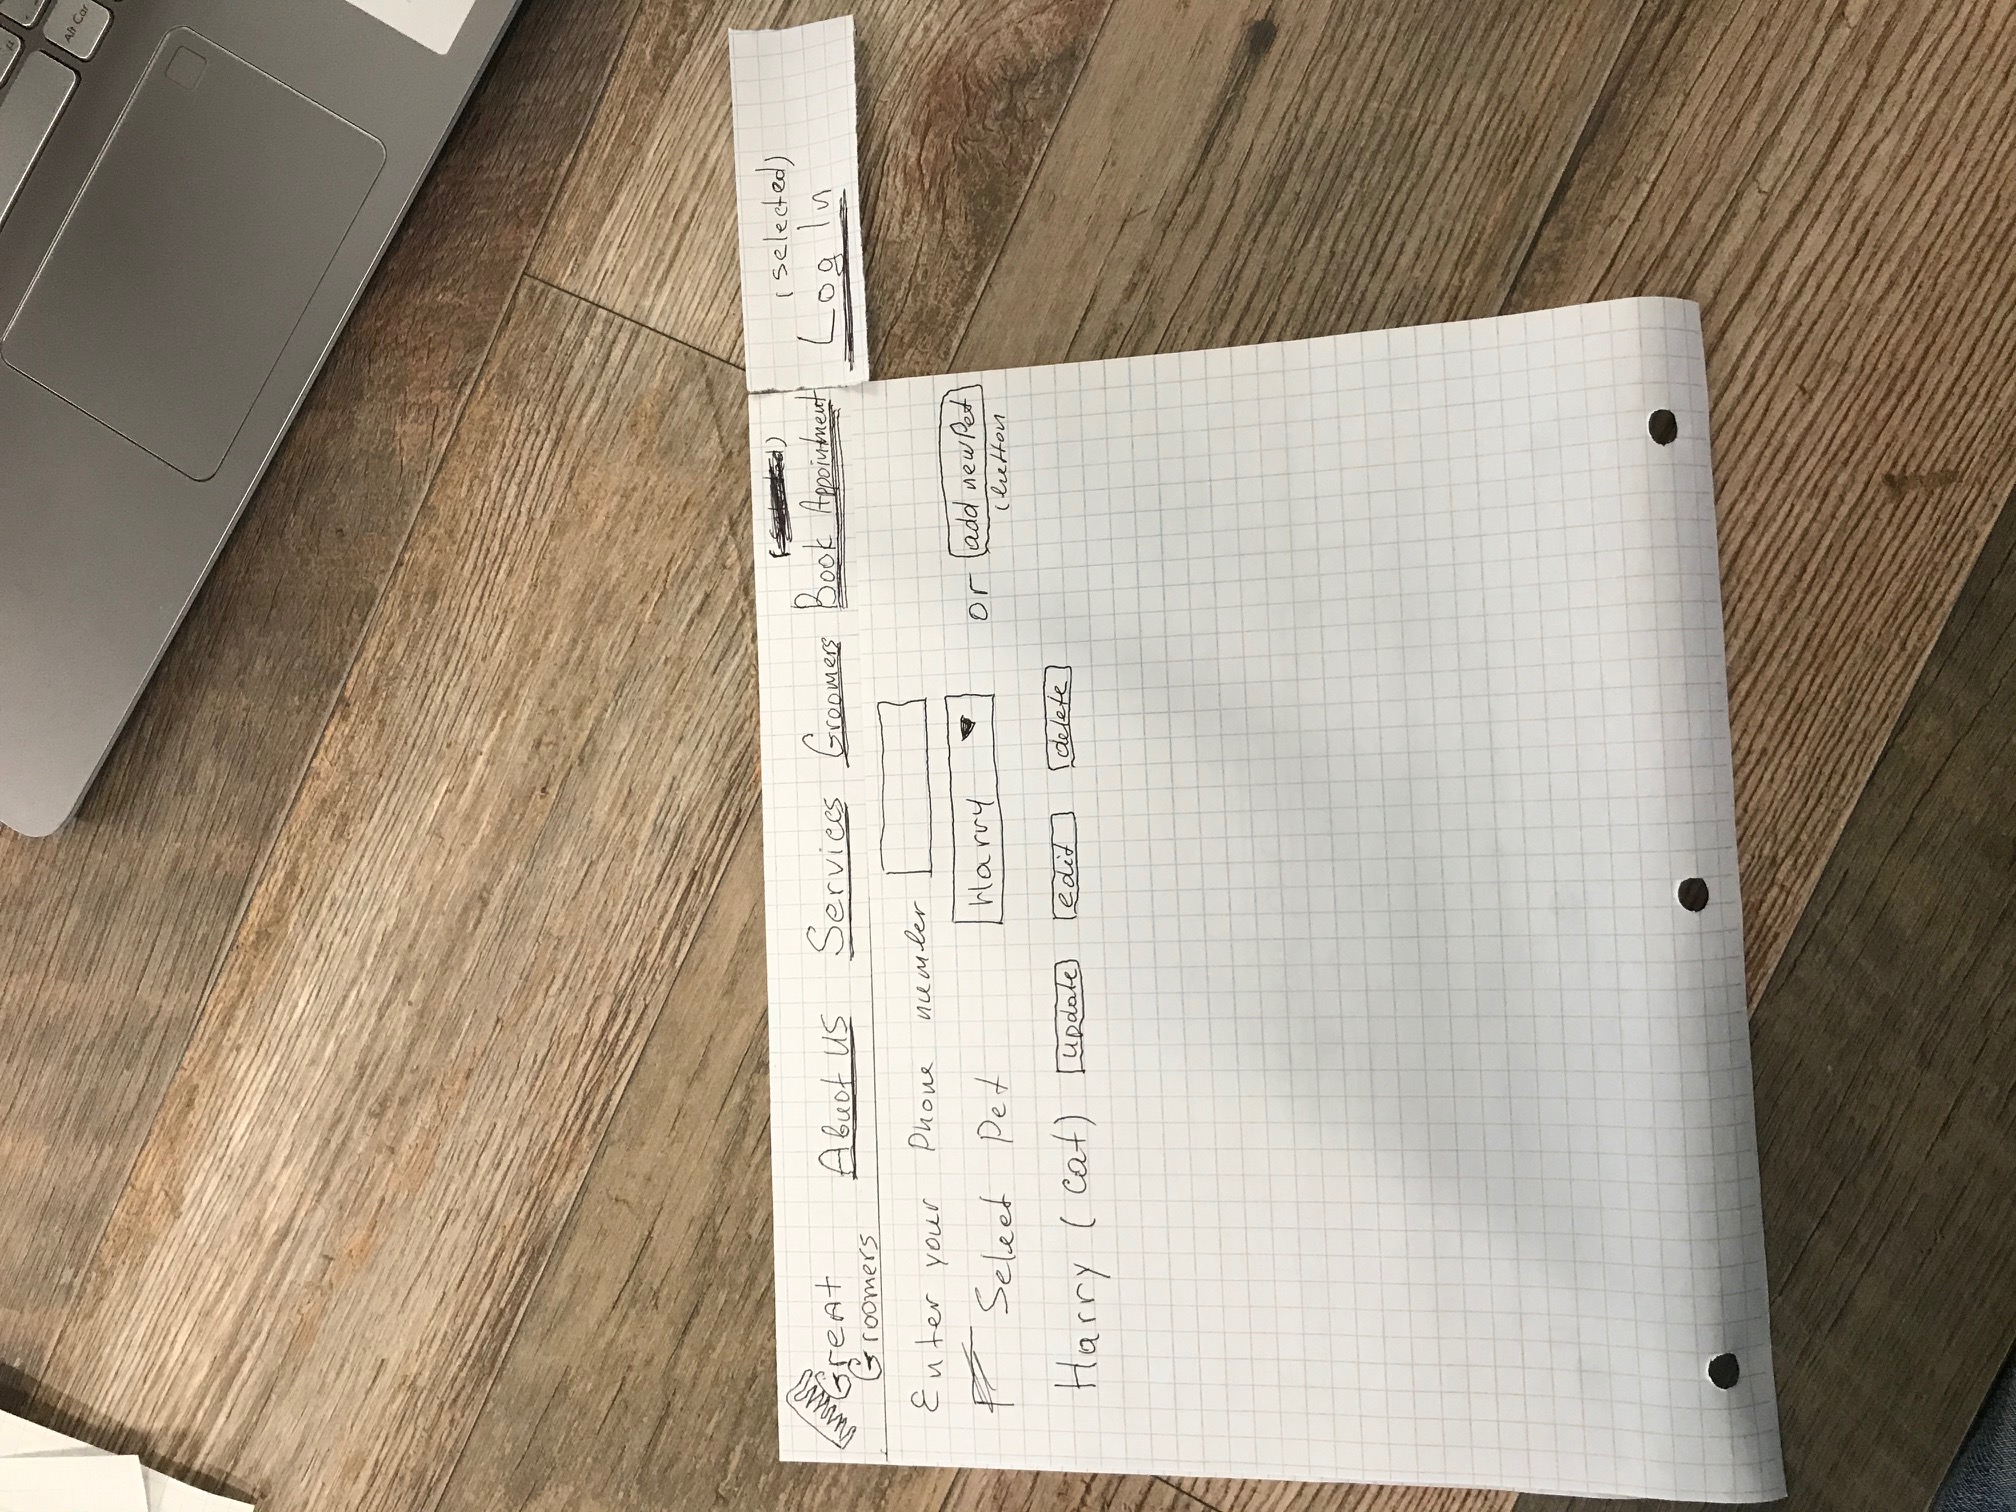 Alt Car
(selected)
Great Groomers
Abuot us
Services
Groomers
Book Appointment
Log In
Enter your Phone number
Select Pet
Harry
or
add new Pet
button
Harry (cat)
update
edit
delete